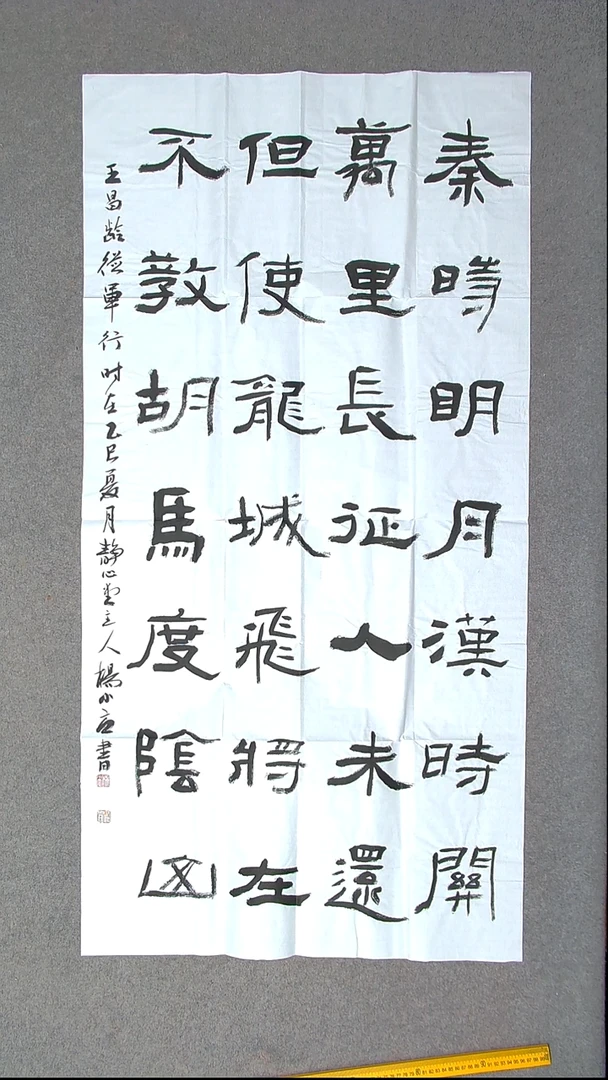 秦時明月漢時關
萬里長征人未還
但使龍城飛將在
不教胡馬度陰凶
王昌齡從軍行时在乙巳夏月靜心堂主人楊小書